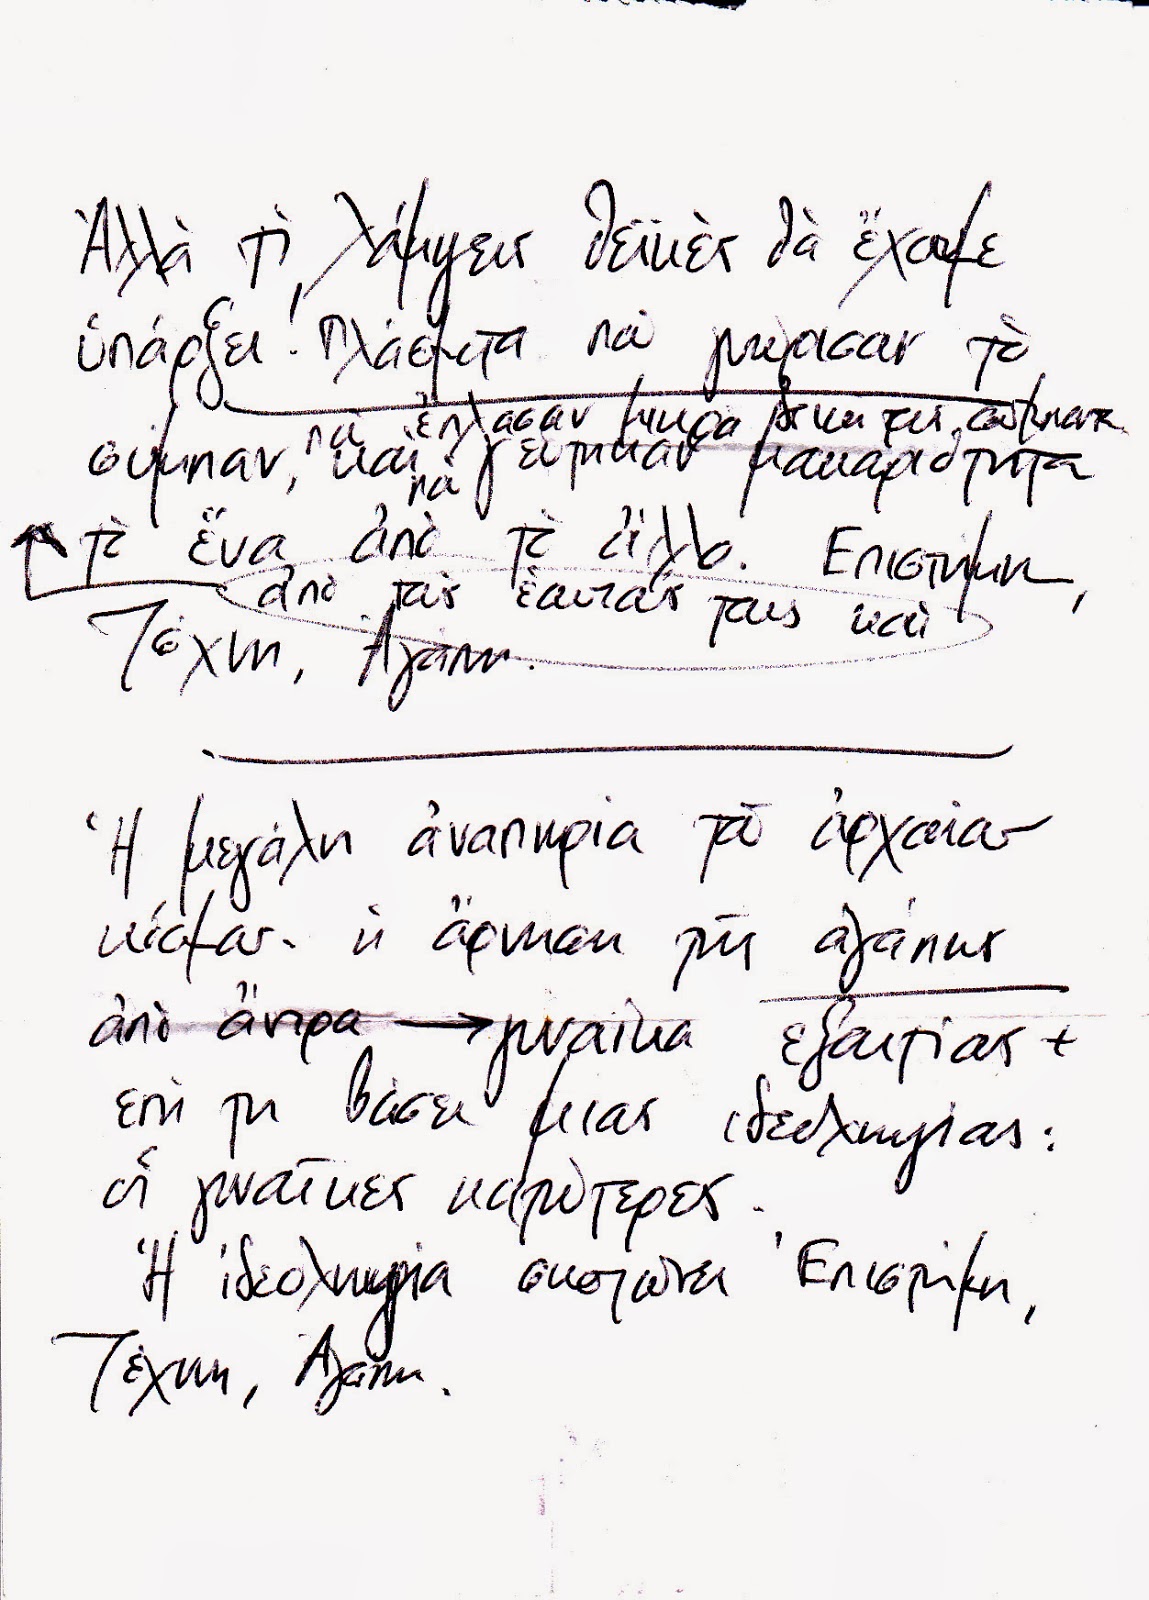 Ἀλλὰ τί λάμψεις θεϊκὲς θὰ ἔχουμε
ὑπάρξει! Πλάσματα ποὺ γνώρισαν τὸ
ποὺ ἔπλασαν μικρὰ δικά τους σύμπαντα
σύμπαν, καὶ ποὺ γεύτηκαν μακαριότητα
τὸ ἕνα ἀπὸ τὸ ἄλλο. Επιστήμη,
ἀπὸ τοὺς ἑαυτούς τους καὶ
Τέχνη, Ἀγάπη.
Ἡ μεγάλη ἀναπηρία τοῦ ἀρχαίου
κόσμου. ἡ ἄρνηση τῆς ἀγάπης
ἀπὸ ἄντρα → γυναίκα εξαιτίας +
επὶ τη βάσει μιας ιδεοληψίας:
οἱ γυναῖκες κατώτερες.
Ἡ ἰδεοληψία σκοτώνει Ἐπιστήμη,
Τέχνη, Ἀγάπη.